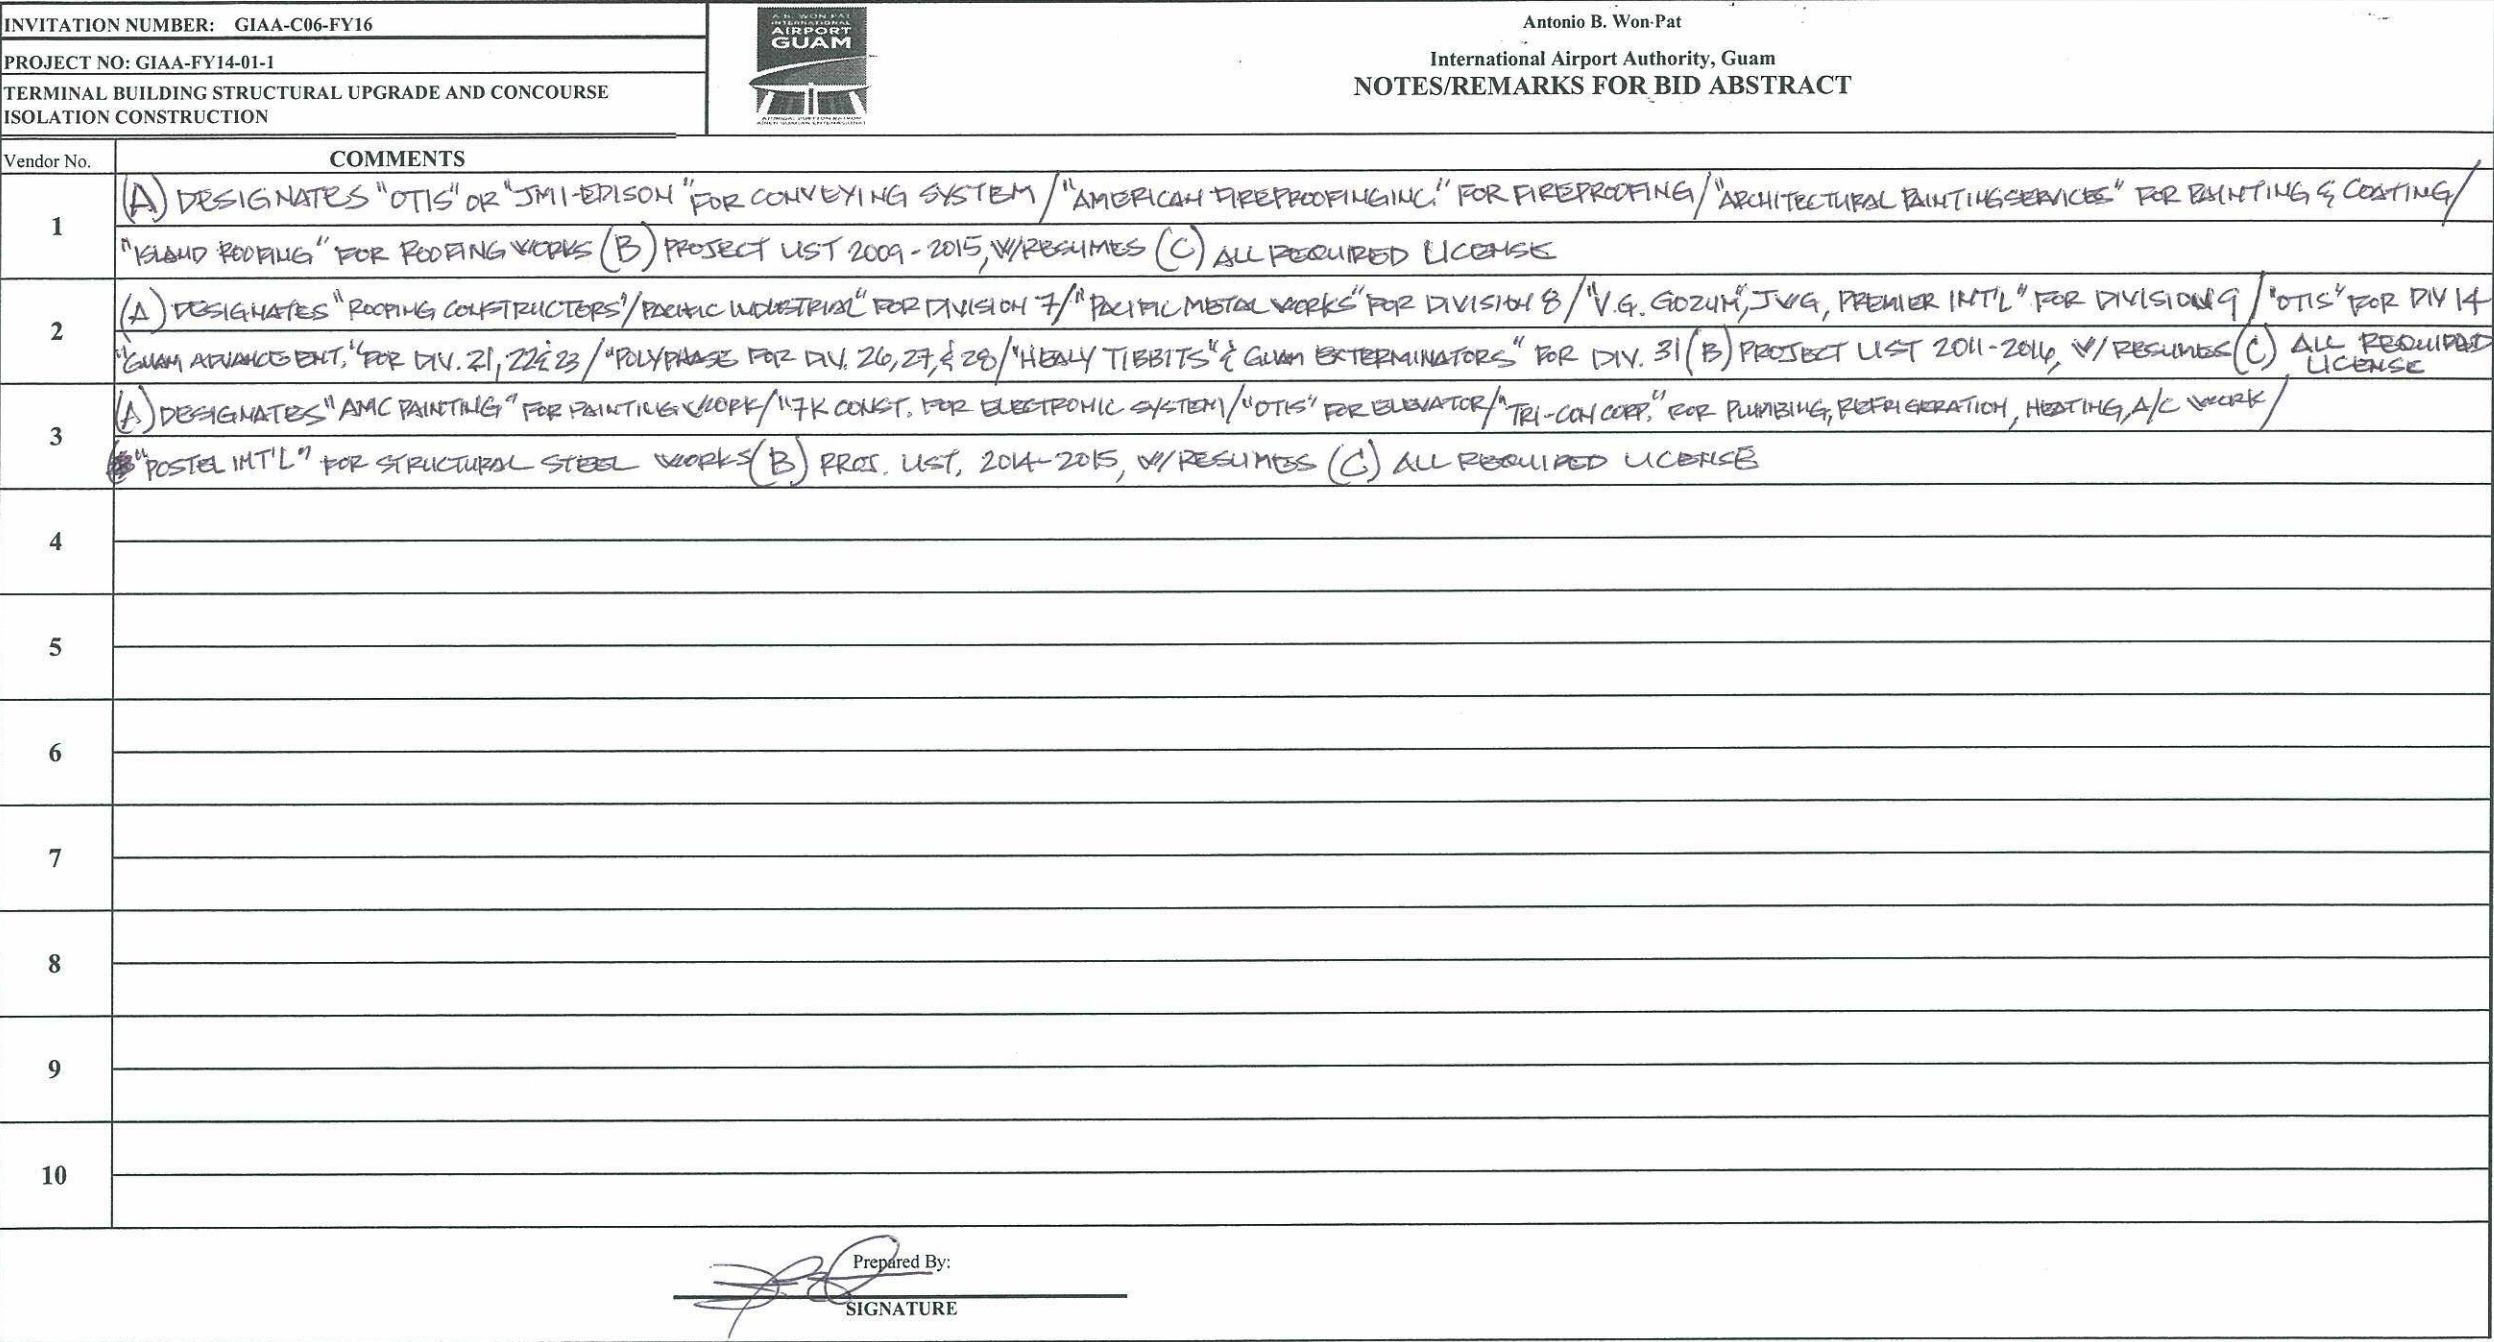 INVITATION NUMBER: GIAA-C06-FY16
PROJECT NO: GIAA-FY14-01-1
TERMINAL BUILDING STRUCTURAL UPGRADE AND CONCOURSE
ISOLATION CONSTRUCTION
A.B. WON PAT
INTERNATIONAL
AIRPORT
GUAM
Antonio B. Won-Pat
International Airport Authority, Guam
NOTES/REMARKS FOR BID ABSTRACT
Vendor No. COMMENTS
1
(A) DESIGNATES "OTIS" OR "JMI-EDISON" FOR CONVEYING SYSTEM / "AMERICAN FIREPROOFING INC." FOR FIREPROOFING / "ARCHITECTURAL PAINTING SERVICES" FOR PAINTING & COATING /
"ISLAND ROOFING" FOR ROOFING WORKS (B) PROJECT LIST 2009-2015, W/RESUMES (C) ALL REQUIRED LICENSE
2
(A) DESIGNATES "ROOFING CONSTRUCTORS"/PACIFIC INDUSTRIAL" FOR DIVISION 7/"PACIFIC METAL WORKS" FOR DIVISION 8/"V.G. GOZUM", JWG, PREMIER INT'L" FOR DIVISION 9 / "OTIS" FOR DIV 14
"GUAM ADVANCE ENT." FOR DIV. 21, 22 & 23 / "POLYPHASE FOR DIV. 26, 27, & 28 / "HEALY TIBBITS" & GUAM EXTERMINATORS" FOR DIV. 31 (B) PROJECT LIST 2011-2016, W/ RESUMES (C) ALL REQUIRED
LICENSE
3
(A) DESIGNATES "AMC PAINTING" FOR PAINTING WORK / "7K CONST. FOR ELECTRONIC SYSTEM / "OTIS" FOR ELEVATOR / "TRI-CON CORP." FOR PLUMBING, REFRIGERATION, HEATING, A/C WORK /
"POSTEL INT'L" FOR STRUCTURAL STEEL WORKS (B) PROJ. LIST, 2014-2015, W/ RESUMES (C) ALL REQUIRED LICENSE
4
5
6
7
8
9
10
Prepared By:
SIGNATURE